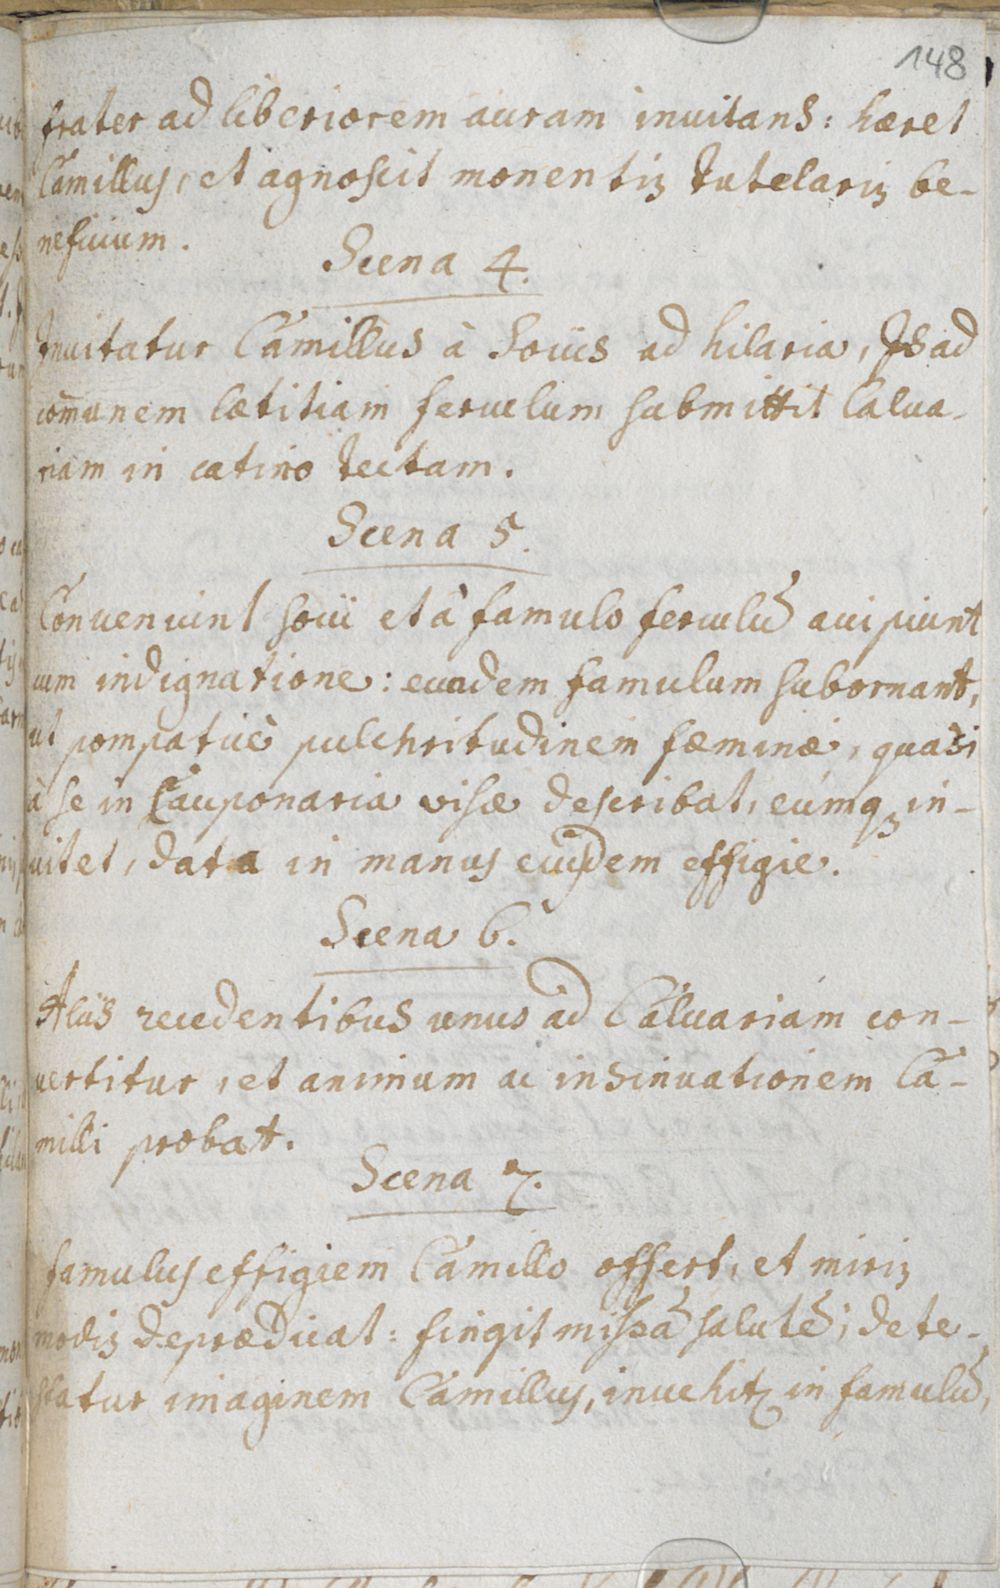 148
frater ad liberiorem auram inuitans: hæret
Camillus, et agnoscit monentis tutelaris be-
neficium.
Scena 4.
Inuitatur Camillus à Sociis ad hilaria, Is ad
com̄unem lætitiam ferculum submittit Calua-
riam in catino tectam.
Scena 5.
Conueniunt socii et à famulo ferculū accipiunt
cum indignatione: eundem famulum subornant,
ut pompaticè pulchritudinem fæminæ, quasi
à se in Cauponaria visæ describat, eumq; in-
uitet, data in manus eiusdem effigie.
Scena 6.
Aliis recedentibus unus ad Caluariam con-
uertitur, et animum ac insinuationem Ca-
milli probat.
Scena 7.
famulus effigiem Camillo offert, et miris
modis deprædicat: fingit missā salutē; dete-
statur imaginem Camillus, inuehitr in famulū,